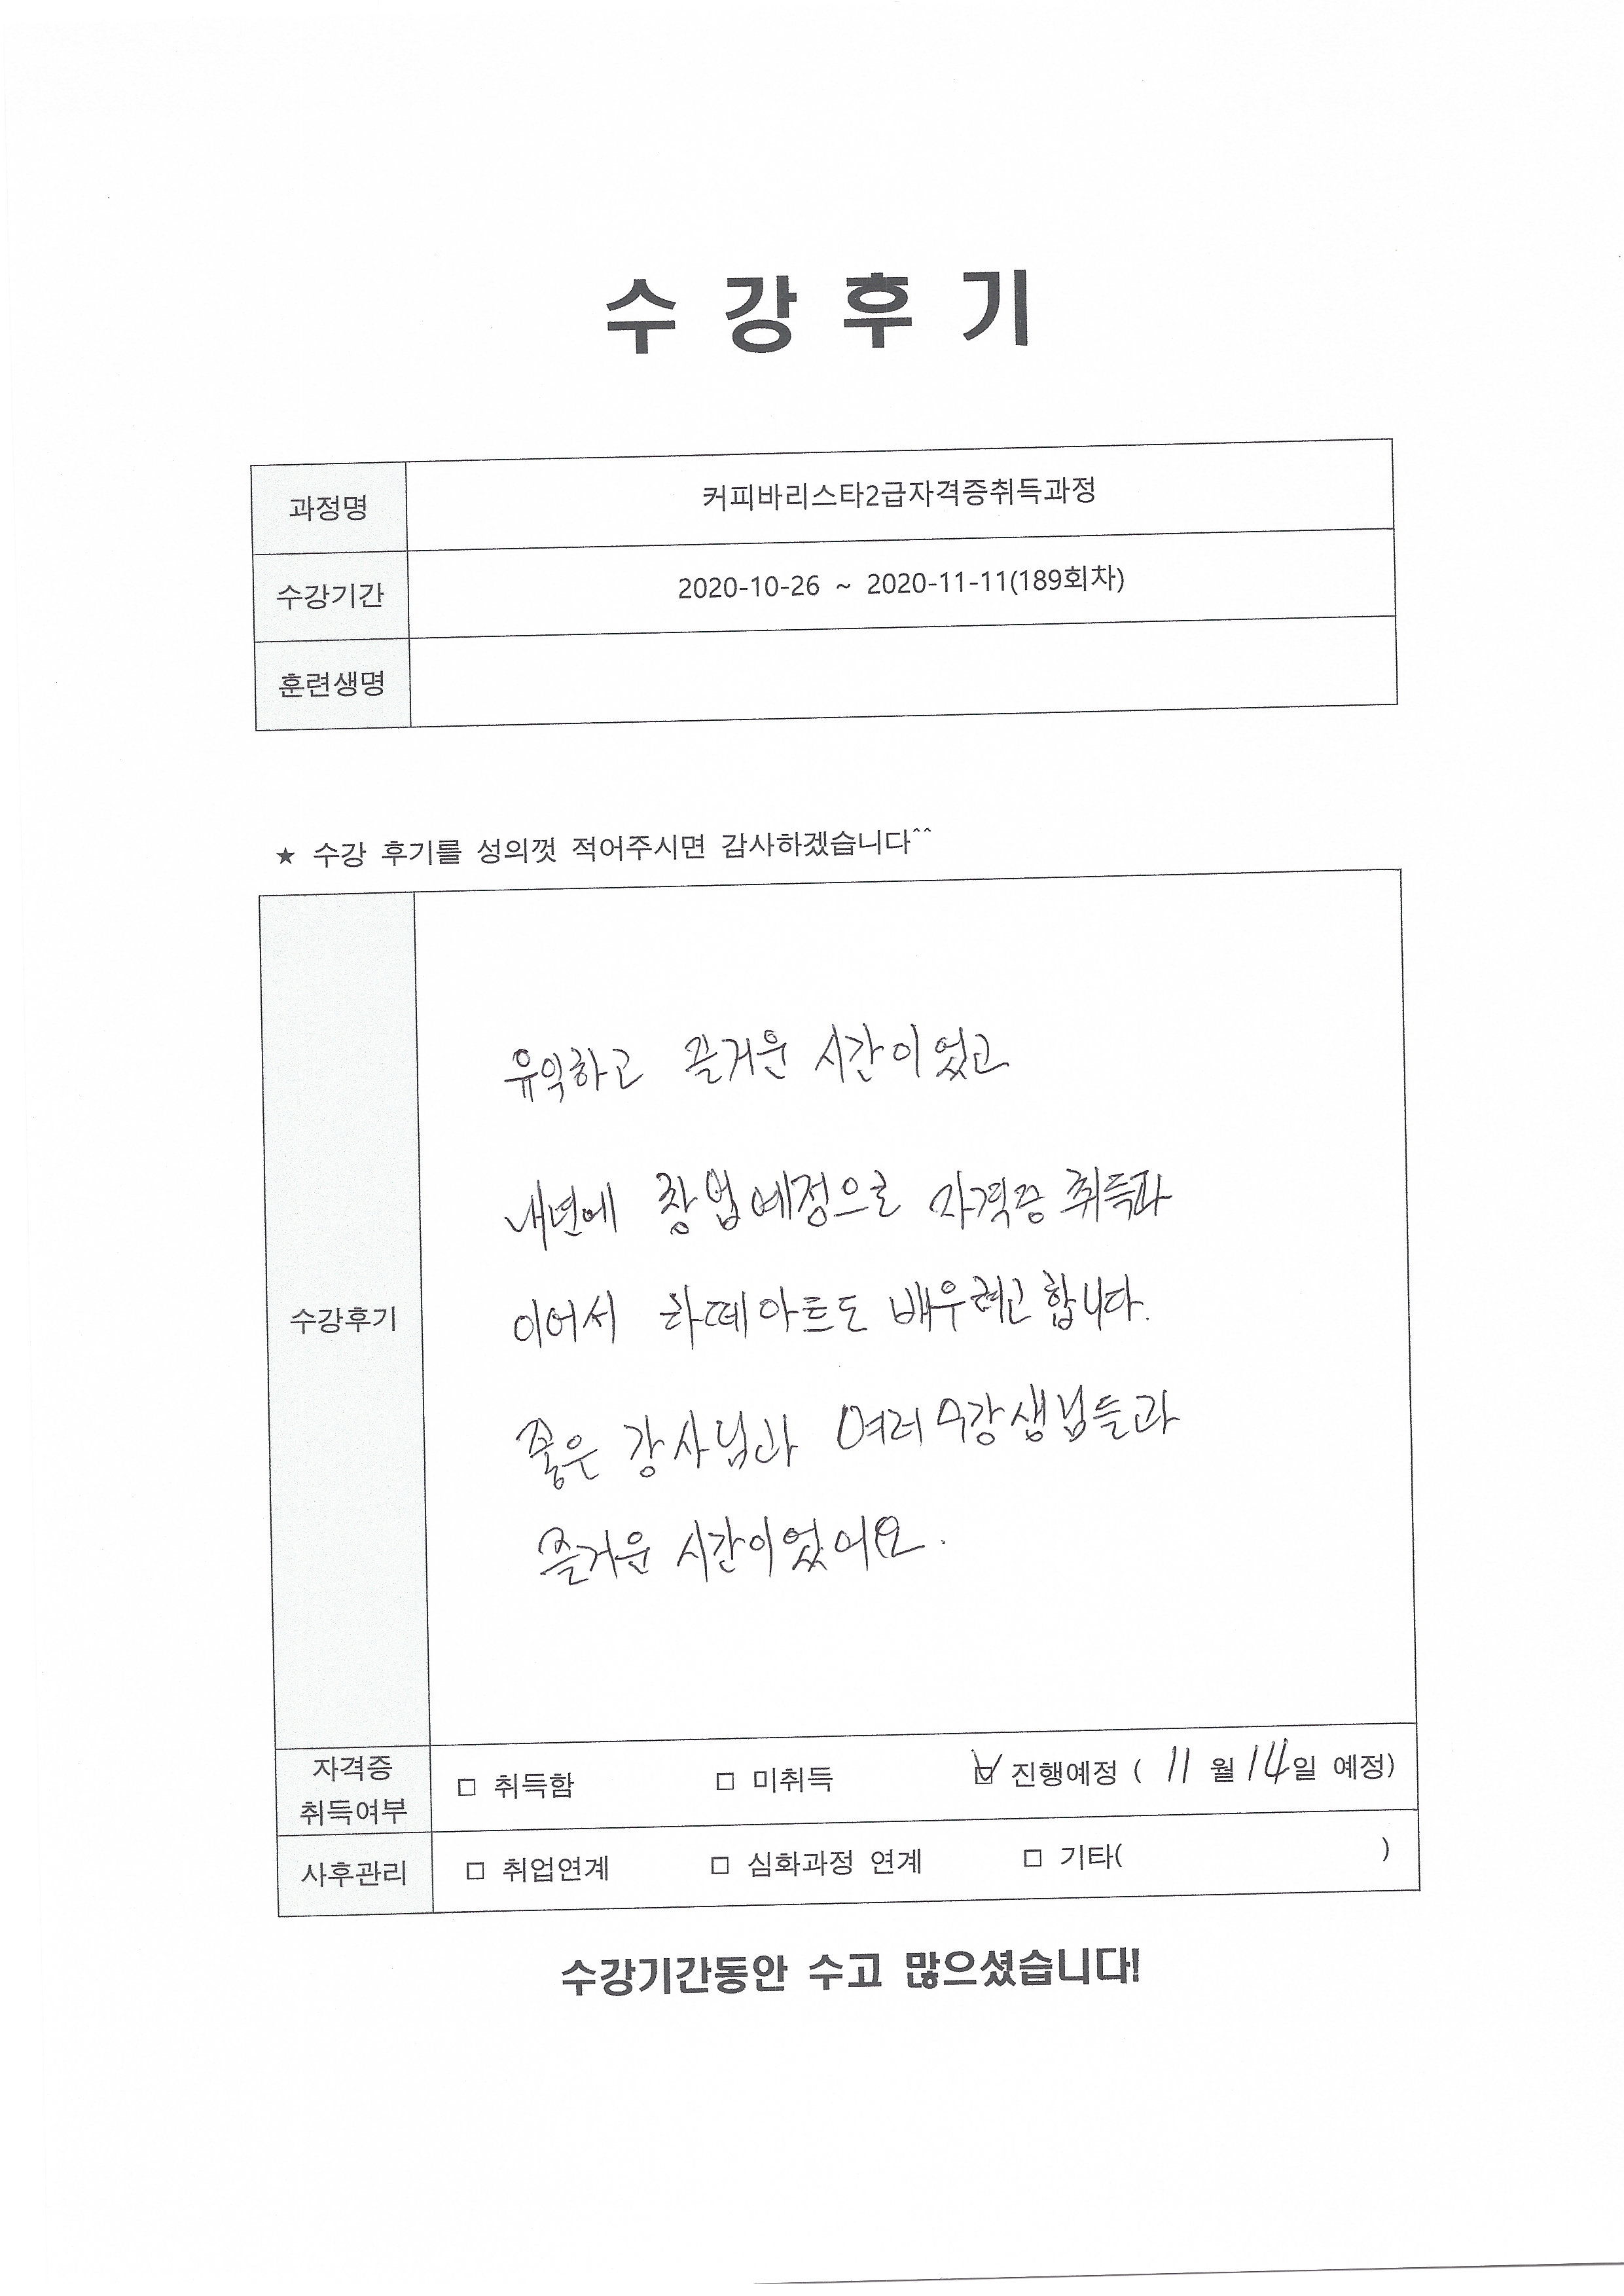 수 강 후 기
과정명 커피바리스타2급자격증취득과정
수강기간 2020-10-26 ~ 2020-11-11(189회차)
훈련생명
★ 수강 후기를 성의껏 적어주시면 감사하겠습니다^^
수강후기
유익하고 즐거운 시간이었고
내년에 창업예정으로 자격증 취득과
이어서 라떼아트도 배우려고 합니다.
좋은 강사님과 여러 수강생님들과
즐거운 시간이었어요.
자격증
취득여부
□ 취득함 □ 미취득 ☑ 진행예정 ( 11 월 14일 예정)
사후관리 □ 취업연계 □ 심화과정 연계 □ 기타( )
수강기간동안 수고 많으셨습니다!